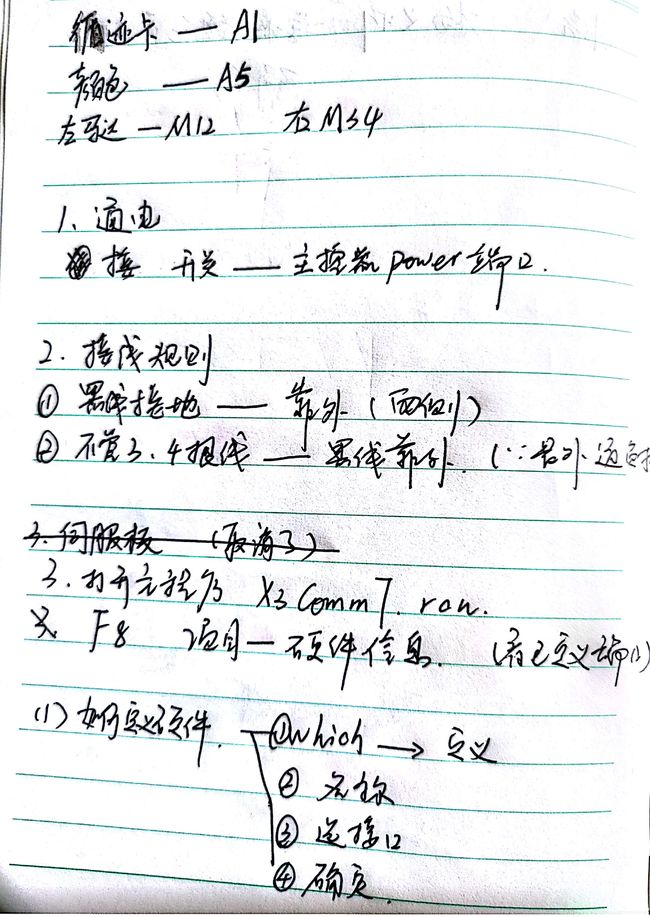 循迹卡 — A1
颜色 — A5
左马达 — M12 右M34
1. 通电
接 开关 — 主控器 power 端口.
2. 接线规则
① 黑线接地 — 靠外 (两侧)
② 不管3.4根线 — 黑线靠外. (∵最外通
3. 伺服 (取消了)
3. 打开 X3 Comm7. row.
F8 项目—硬件信息. (看已定义端口)
(1) 如何定义硬件. ①which → 定义
② 名称
③ 选接口
④ 确定.